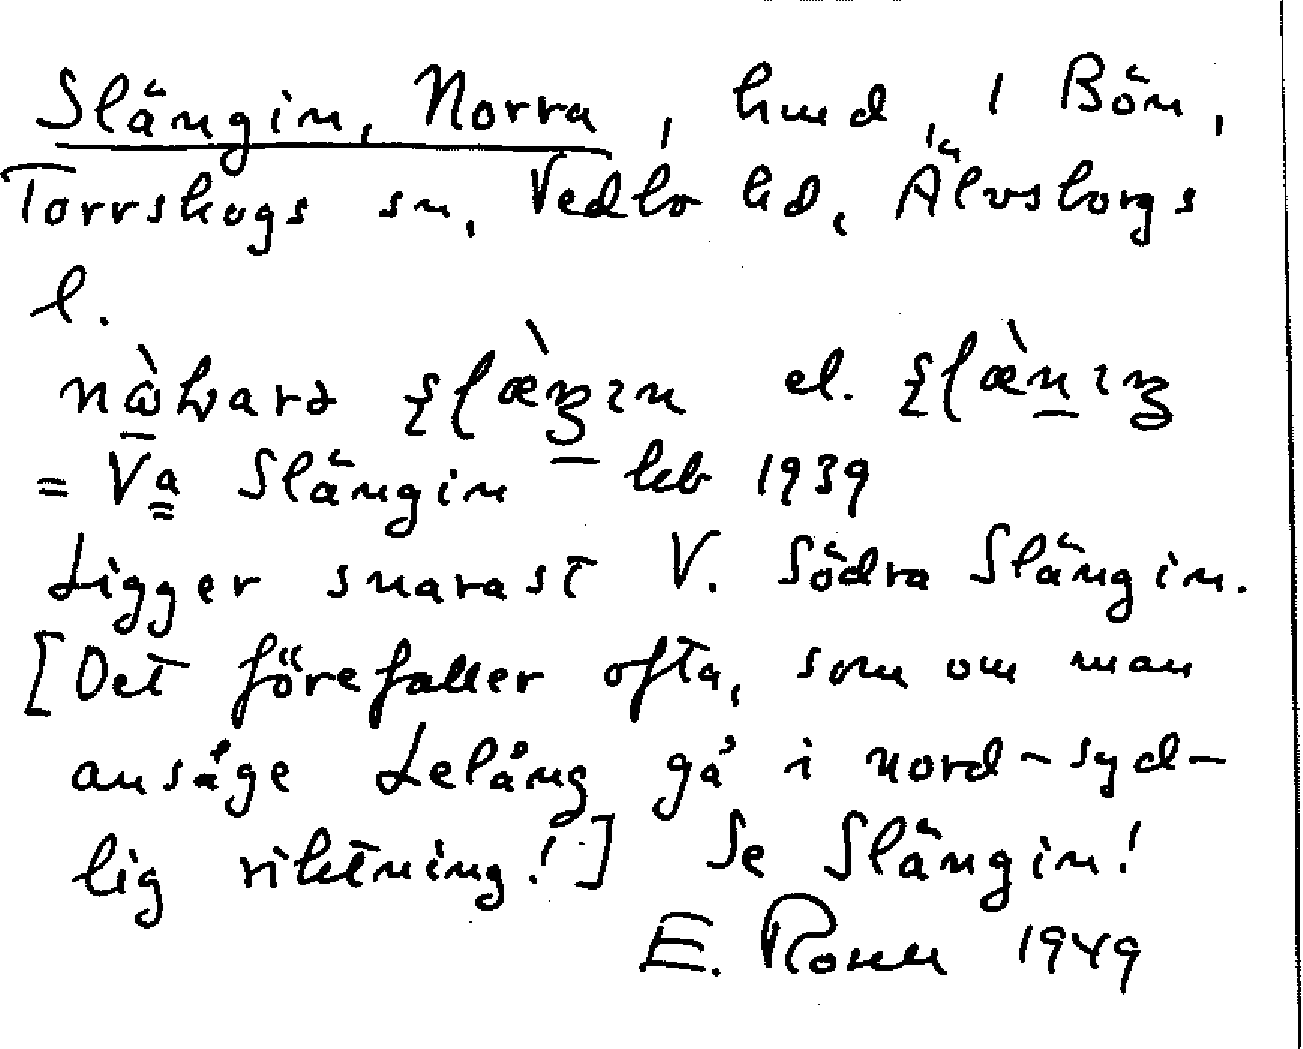 Slängin, Norra, hmd, i Bön,
Torrskogs sn, Vedbo hd, Älvsborgs
l.
el.
= Va Slängin – kb 1939
Ligger snarast V. Södra Slängin.
[Det förefaller ofta, som om man
ansåge Lelång gå i nord-syd-
lig riktning!] Se Slängin!
E. 1949